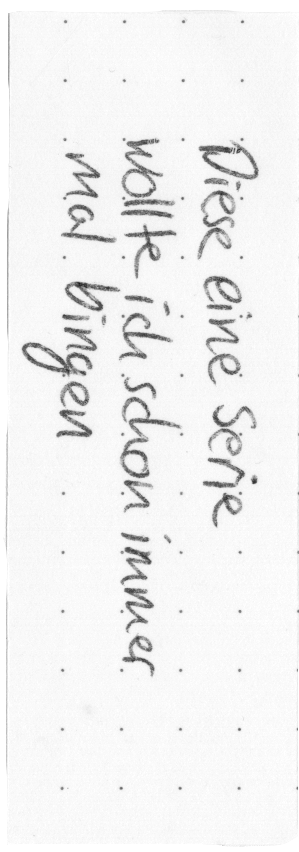 Diese eine Serie
wollte ich schon immer
mal bingen